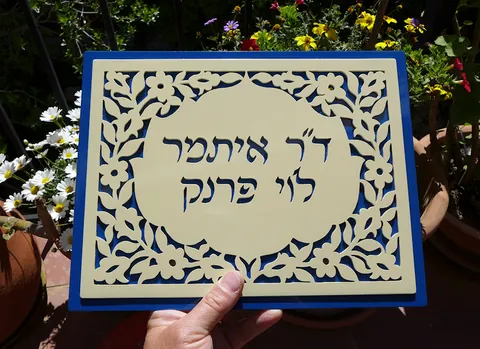 ד"ר איתמר
לוי פרנק